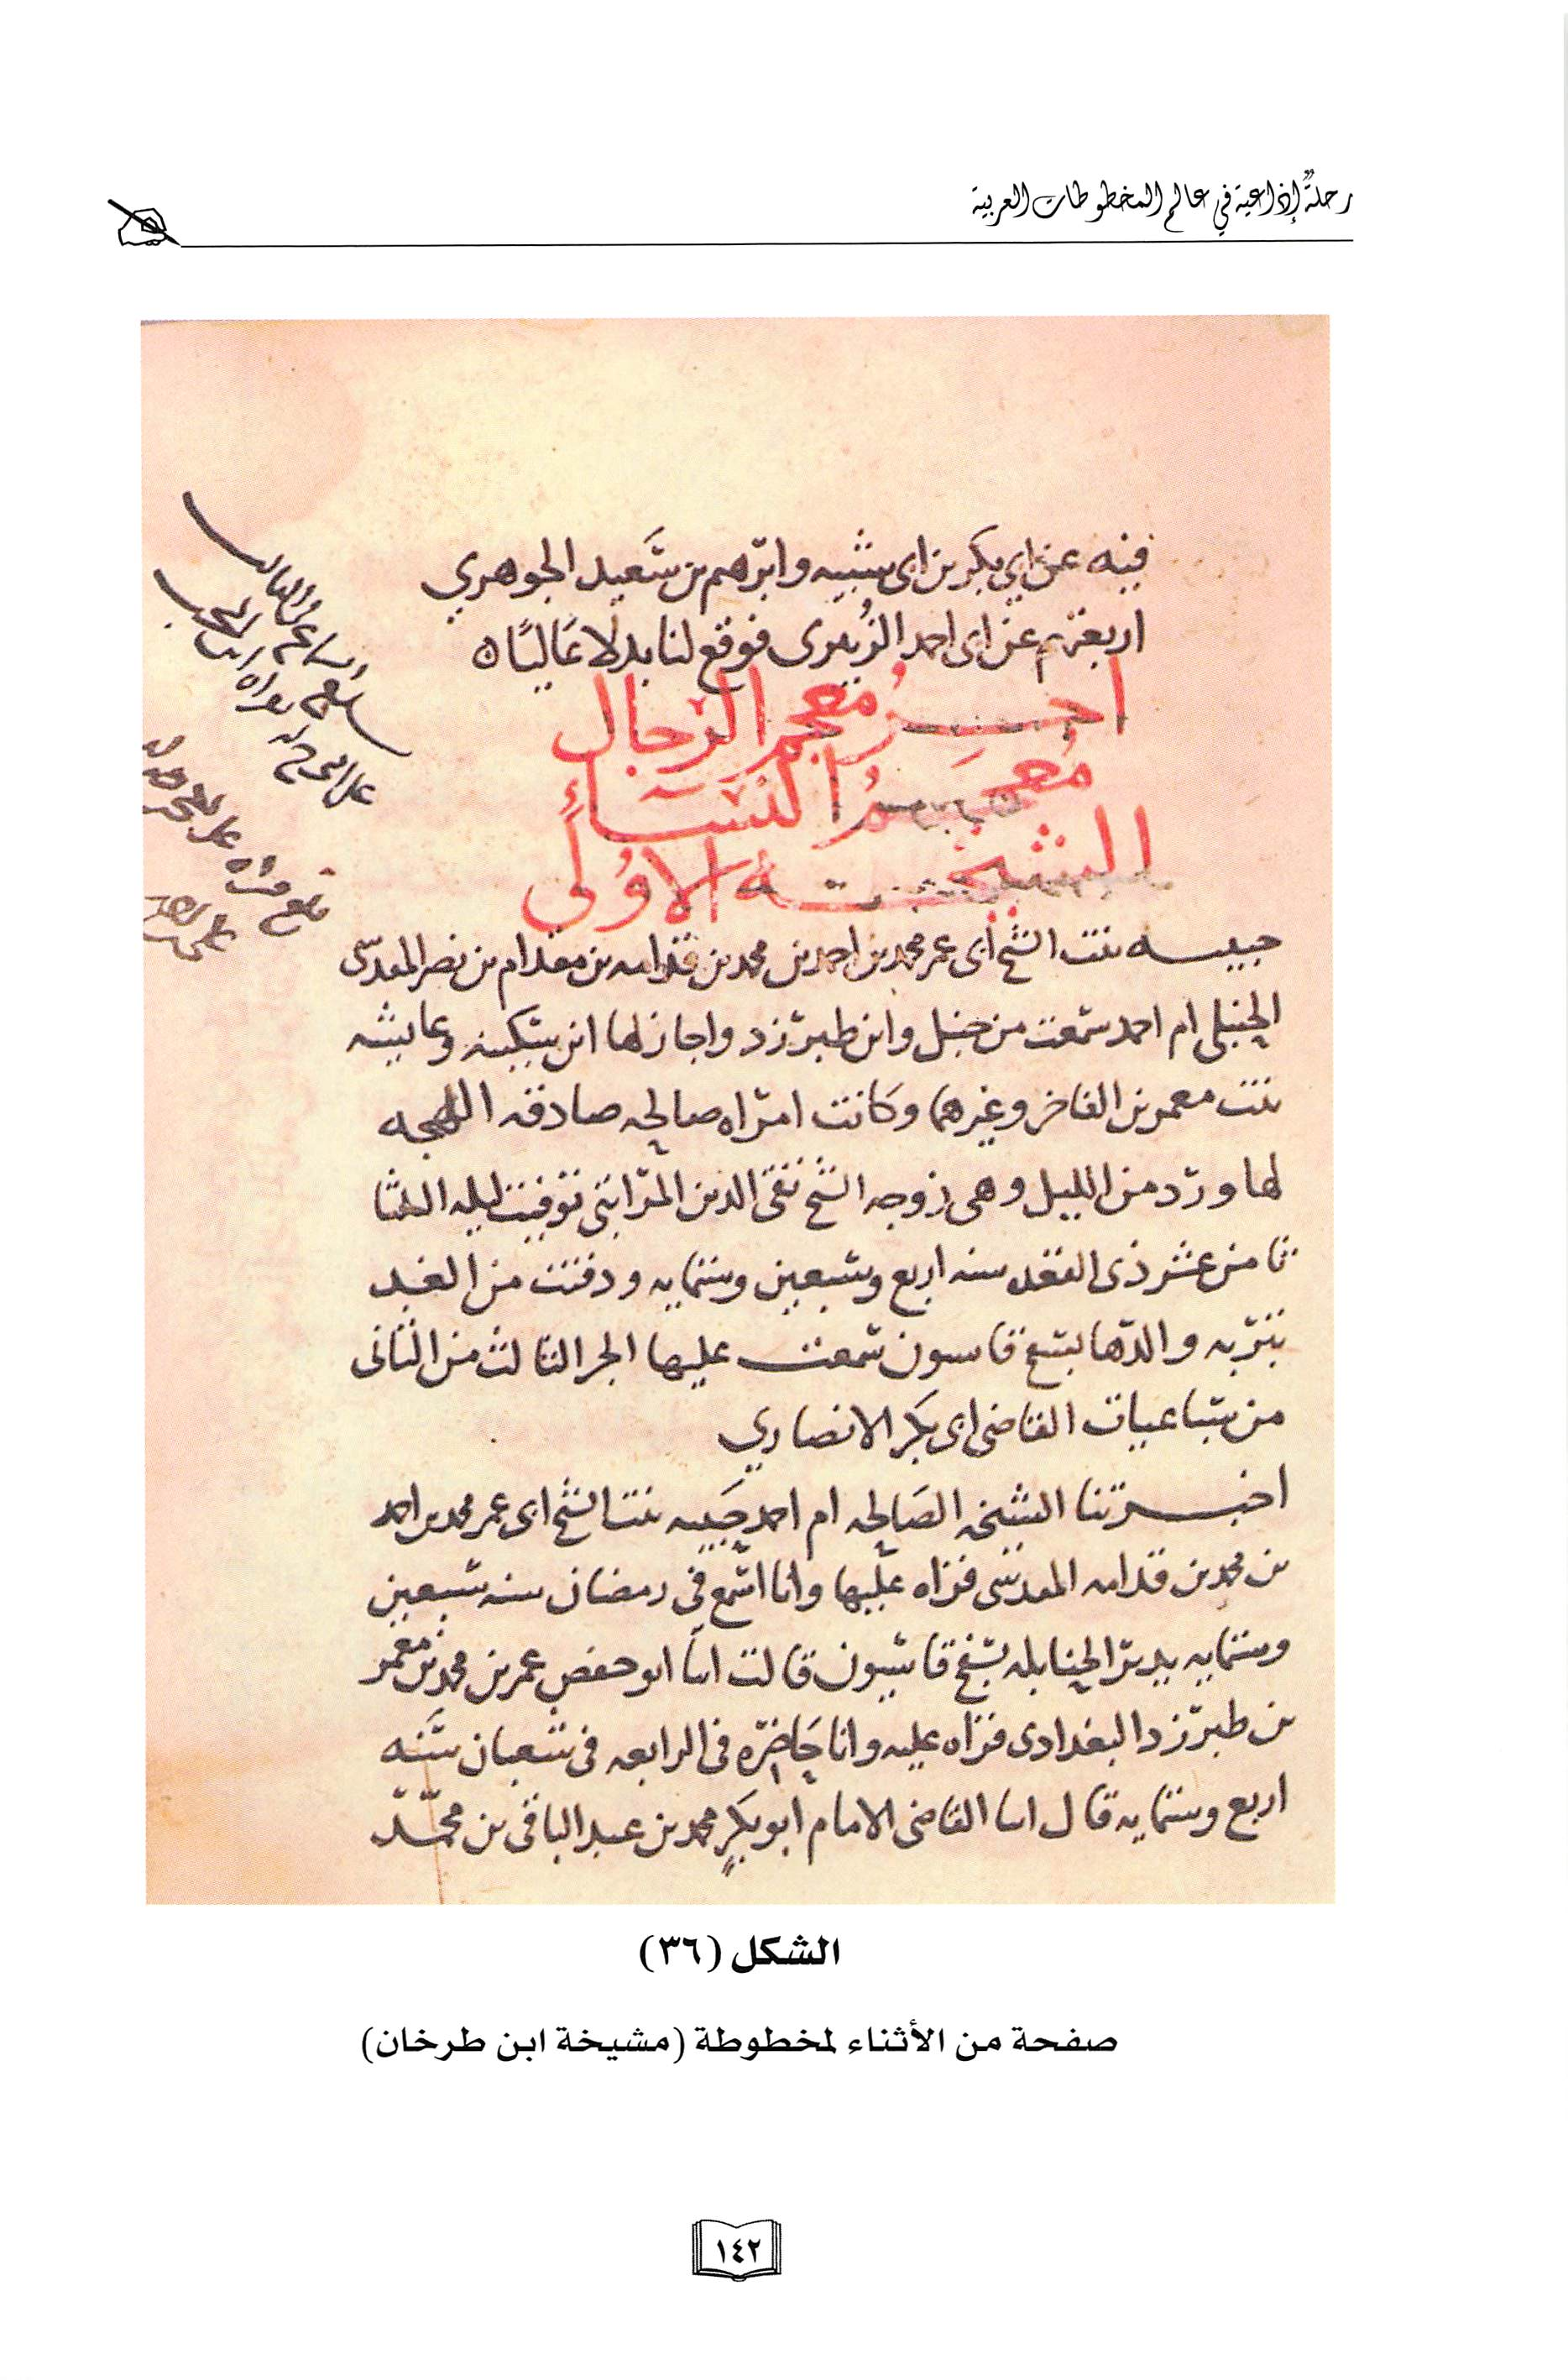 رحلةٌ إذاعية في عالم المخطوطات العربية
فيه عن ابي بكر بن ابى شيبه وابرهيم بن سَعيد الجوهري
اربعتهم عن ابى احمد الزُبيرى فوقع لنا بدلًا عَاليًا ه
اخِــرُ معجم الرجال
مُعجَــمُ النسَــاءِ
الشيخــه الاوُلى
حبيبــه بنت الشيخ ابى عمر محمد بن احمد بن محمد بن قدامه بن مقدام بن نصر المقدسى
الحنبلى ام احمد سمعت من حنبل وابن طبرزد واجاز لها ابن سكينه وعايشه
بنت معمر بن الفاخر وغيرهما وكانت امراه صالحه صادقه اللهجه
لها ورد من الليل وهى زوجه الشيخ تقى الدين المراتبى توفيت ليله الثلثا
ثامن عشر ذى القعده سنه اربع وسبعين وستمايه ودفنت من الغد
بتربه والدها بسفح قاسون سمعت عليها الجز الثالث من الثانى
من سباعيات القاضى ابى بكر الانصاري
اخبــرتنا الشيخه الصَالحه ام احمد حَبيبه بنت الشيخ ابى عمر محمد بن احمد
بن محمد بن قدامه المقدسى قراه عليها وانا اسمع فى رمضان سنه سبعين
وستمايه بدير الحنابله بسفح قاسيون قالت ابنا ابو حفص عمر بن محمد بن معمر
بن طبرزد البغدادى قراه عليه وانا حَاضره فى الرابعه فى شعبان سَنه
اربع وستمايه قال ابنا القاضى الامام ابو بكرٍ محمد بن عبد الباقى بن محمّــد
الشكل (٣٦)
صفحة من الأثناء لمخطوطة (مشيخة ابن طرخان)
١٤٢